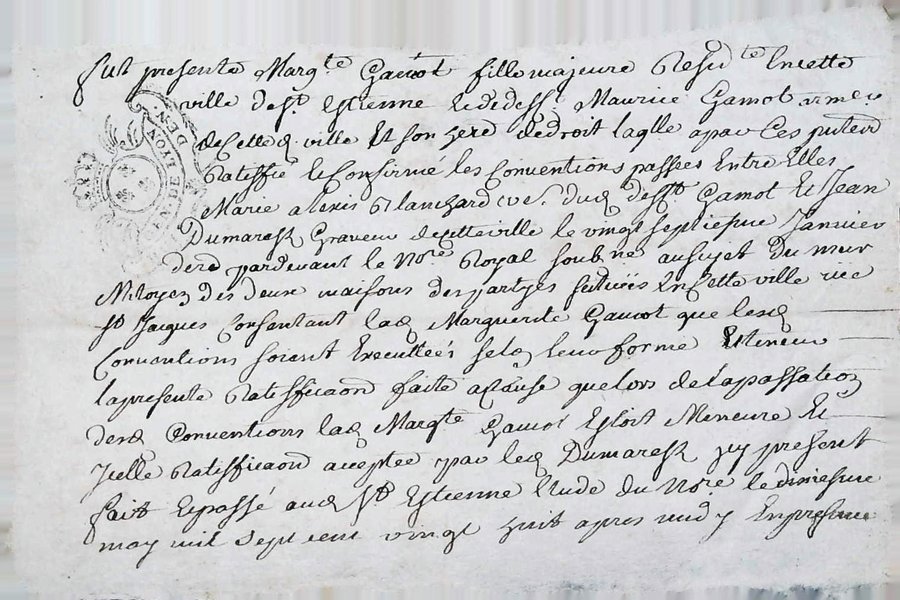 fut presente Marg.te Gamot fille majeure Resid.te En cette
ville de St Estienne de deff.t Maurice Gamot
de cette d ville Et son here de droit laqlle a par Ces putes
Ratiffié & Confirmé les Conventions passées Entre Elles
Marie alexis Blanchard ve. dud deff.t Gamot Et Jean
Dumarest Graveur de cette ville le vingt septiesme Janvier
der.e pardevant le No.re Royal soub.ne au sujet du mur
Mitoyen des deux maisons des partyes scituées En Cette ville rüe
St Jacques Consentant lad Marguerite Gamot que lesd
Conventions soient Executtées selon leur forme Et teneur
la presente Ratifficaon faite a Cause que lors de la passation
desd Conventions lad Margte Gamot Estoit Mineure Et
Icelle Ratifficaon acceptée par led Dumarest icy present
fait & passé aud St Estienne Etude du No.re le
may mil sept cent vingt huit apres midy En presence
DE LYON